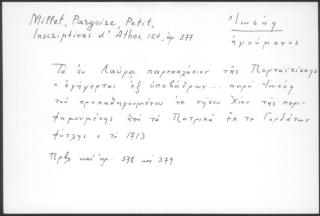 Millet, Pargoire, Petit,
Inscriptions d'Athos, 124, ἀρ 377
Ἰωσὴφ
ἡγούμενος
Τὸ ἐν Λαύρᾳ παρεκκλήσιον τῆς Πορταϊτίσσης
ἀνήγερται ἐξ ὑποβάθρων... παρὰ Ἰωσὴφ
τοῦ προηγουμένου ἐκ νήσου Χίου τῆς περι
φημουμένης ἀπὸ τὰ Πατρικὰ ἐκ τε
φύτλης ᾳ τῳ 1713
Πρβλ καὶ ἀρ. 378 καὶ 379